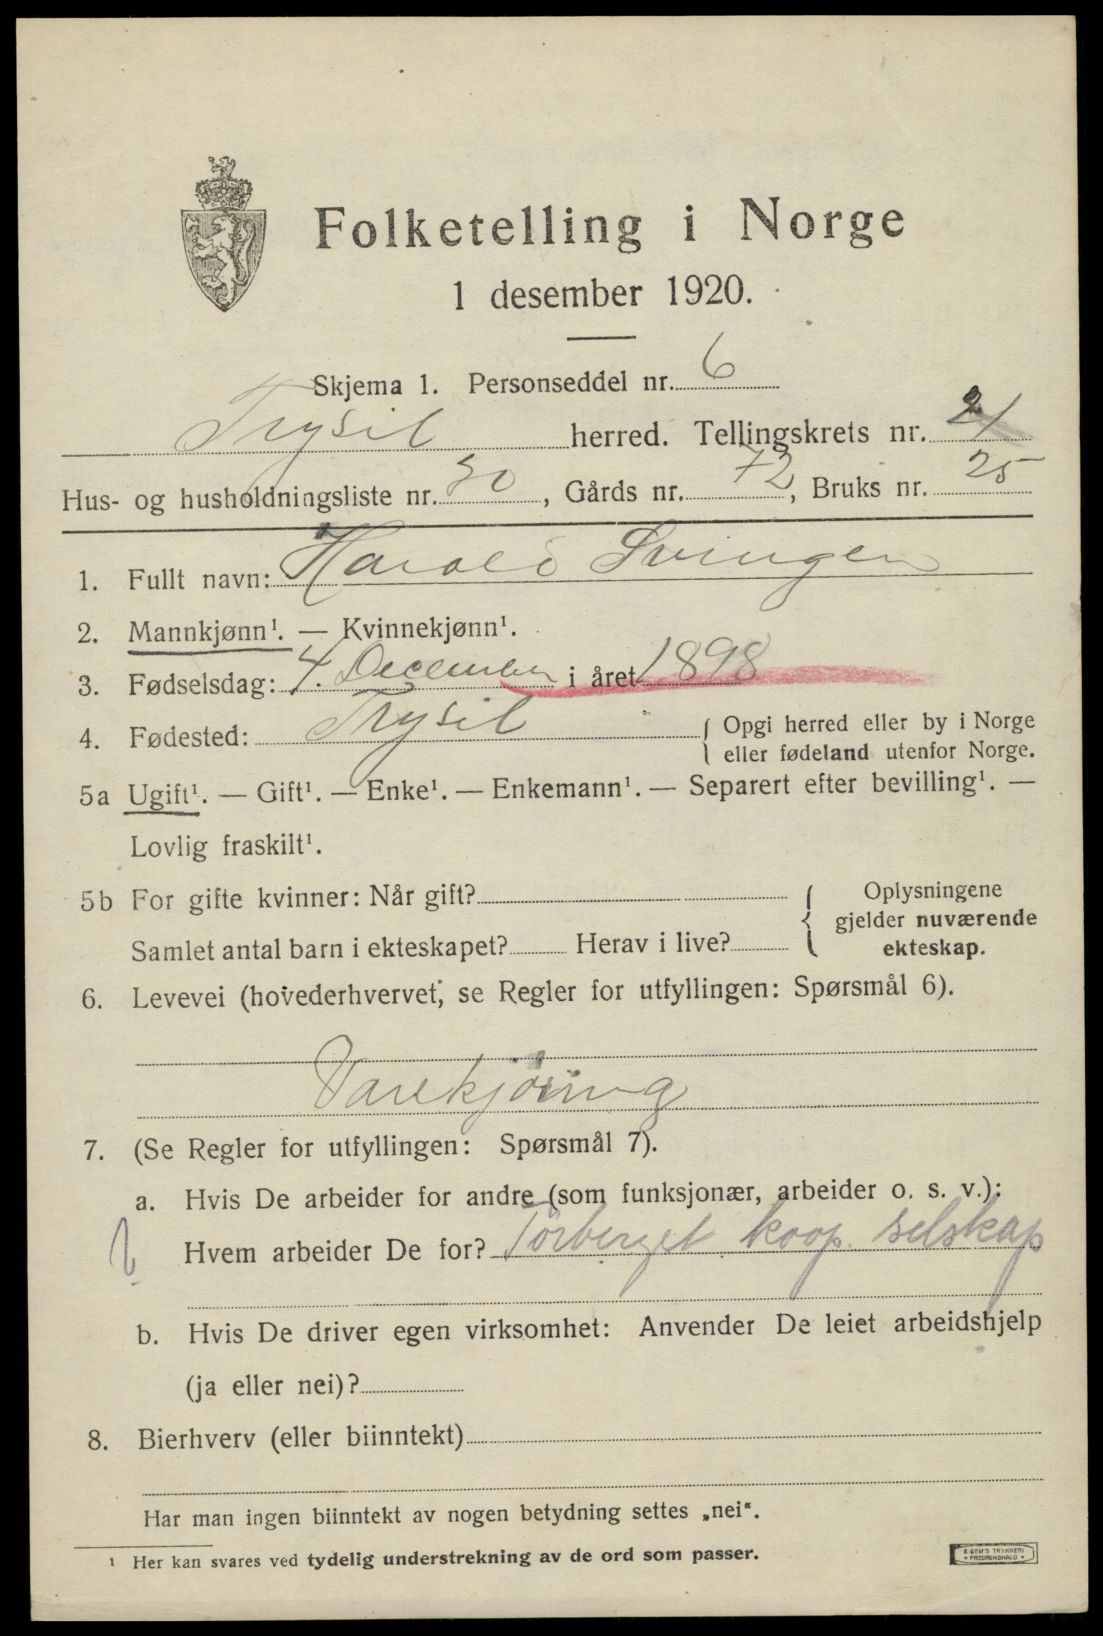 Folketelling i Norge
1 desember 1920.
Skjema 1. Personseddel nr. 6
Trysil herred. Tellingskrets nr. 21
Hus- og husholdningsliste nr. 30, Gårds nr. 72, Bruks nr. 25
1. Fullt navn: Harald Svingen
2. Mannkjønn¹. — Kvinnekjønn¹.
3. Fødselsdag: 4. December i året 1898
4. Fødested: Trysil { Opgi herred eller by i Norge
eller fødeland utenfor Norge.
5a Ugift¹. — Gift¹. — Enke¹. — Enkemann¹. — Separert efter bevilling¹. —
Lovlig fraskilt¹.
5b For gifte kvinner: Når gift? { Oplysningene
gjelder nuværende
Samlet antal barn i ekteskapet? Herav i live? ekteskap.
6. Levevei (hovederhvervet, se Regler for utfyllingen: Spørsmål 6).
Varekjöring
7. (Se Regler for utfyllingen: Spørsmål 7).
a. Hvis De arbeider for andre (som funksjonær, arbeider o. s. v.):
Hvem arbeider De for? Törberget koop. selskap
b. Hvis De driver egen virksomhet: Anvender De leiet arbeidshjelp
(ja eller nei)?
8. Bierhverv (eller biinntekt)
Har man ingen biinntekt av nogen betydning settes „nei“.
¹ Her kan svares ved tydelig understrekning av de ord som passer.